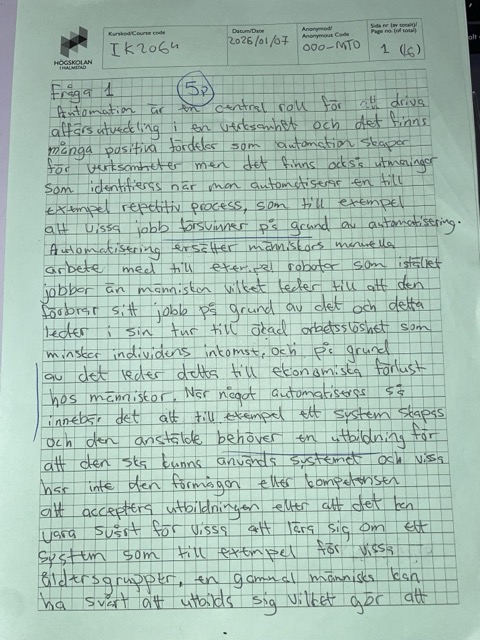 HÖGSKOLAN
I HALMSTAD
Kurskod/Course code
IK2064
Datum/Date
2026/01/07
Anonymkod/
Anonymous Code
000-MTO
Sida nr (av totalt)/
Page no. (of total)
1 (16)
Fråga 1
5p
Automation är en central roll för att driva
affärsutveckling i en verksamhet och det finns
många positiva fördelar som automation skapar
för verksamheter men det finns också utmaningar
som identifieras när man automatiserar en till
exempel repetitiv process, som till exempel
att vissa jobb försvinner på grund av automatisering.
Automatisering ersätter människors manuella
arbete med till exempel robotar som istället
jobbar än människan vilket leder till att den
förlorar sitt jobb på grund av det och detta
leder i sin tur till ökad arbetslöshet som
minskar individens inkomst, och på grund
av det leder detta till ekonomiska förlust
hos människor. När något automatiseras så
innebär det att till exempel ett system skapas
och den anstälde behöver en utbildning för
att den ska kunna använda systemet och vissa
har inte den förmågan eller kompetensen
att acceptera utbildningen eller att det kan
vara svårt för vissa att lära sig om ett
system som till exempel för vissa
åldersgrupper, en gammal människa kan
ha svårt att utbilda sig vilket gör att